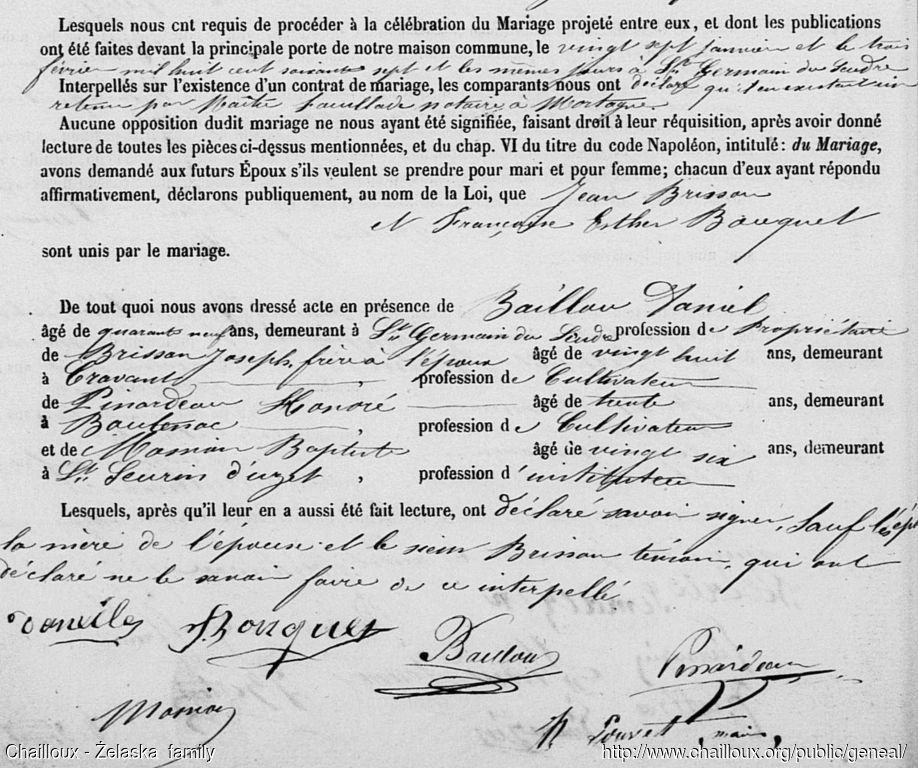 Lesquels nous ont requis de procéder à la célébration du Mariage projeté entre eux, et dont les publications
ont été faites devant la principale porte de notre maison commune, le vingt sept janvier et le trois
février mil huit cent soixante sept et les mêmes jours à St Germain du Seudre
Interpellés sur l'existence d'un contrat de mariage, les comparants nous ont déclaré qu'il en existait un
retenu par Maître notaire à Mortagne.
Aucune opposition dudit mariage ne nous ayant été signifiée, faisant droit à leur réquisition, après avoir donné
lecture de toutes les pièces ci-dessus mentionnées, et du chap. VI du titre du code Napoléon, intitulé: du Mariage,
avons demandé aux futurs Époux s'ils veulent se prendre pour mari et pour femme; chacun d'eux ayant répondu
affirmativement, déclarons publiquement, au nom de la Loi, que Jean Brisson
et Françoise Esther Bouquet
sont unis par le mariage.
De tout quoi nous avons dressé acte en présence de Baillou Daniel
âgé de quarante neuf ans, demeurant à St Germain du Seudre profession de Propriétaire
de Brisson Joseph, frère à l'époux âgé de vingt huit ans, demeurant
à Cravant, profession de Cultivateur
de Pinardeau Honoré âgé de trente ans, demeurant
à Boutenac, profession de Cultivateur
et de Massiou Baptiste âgé de vingt six ans, demeurant
à St Seurin d'uzet, profession d'instituteur
Lesquels, après qu'il leur en a aussi été fait lecture, ont déclaré savoir signer, Sauf
la mère de l'épouse et le sieur Brisson témoin, qui ont
déclaré ne le savoir faire de ce interpellé
Bouquet
Baillou
Pinardeau
Massiou
Louvet, maire,
Chailloux - Želaska family
http://www.chailloux.org/public/geneal/